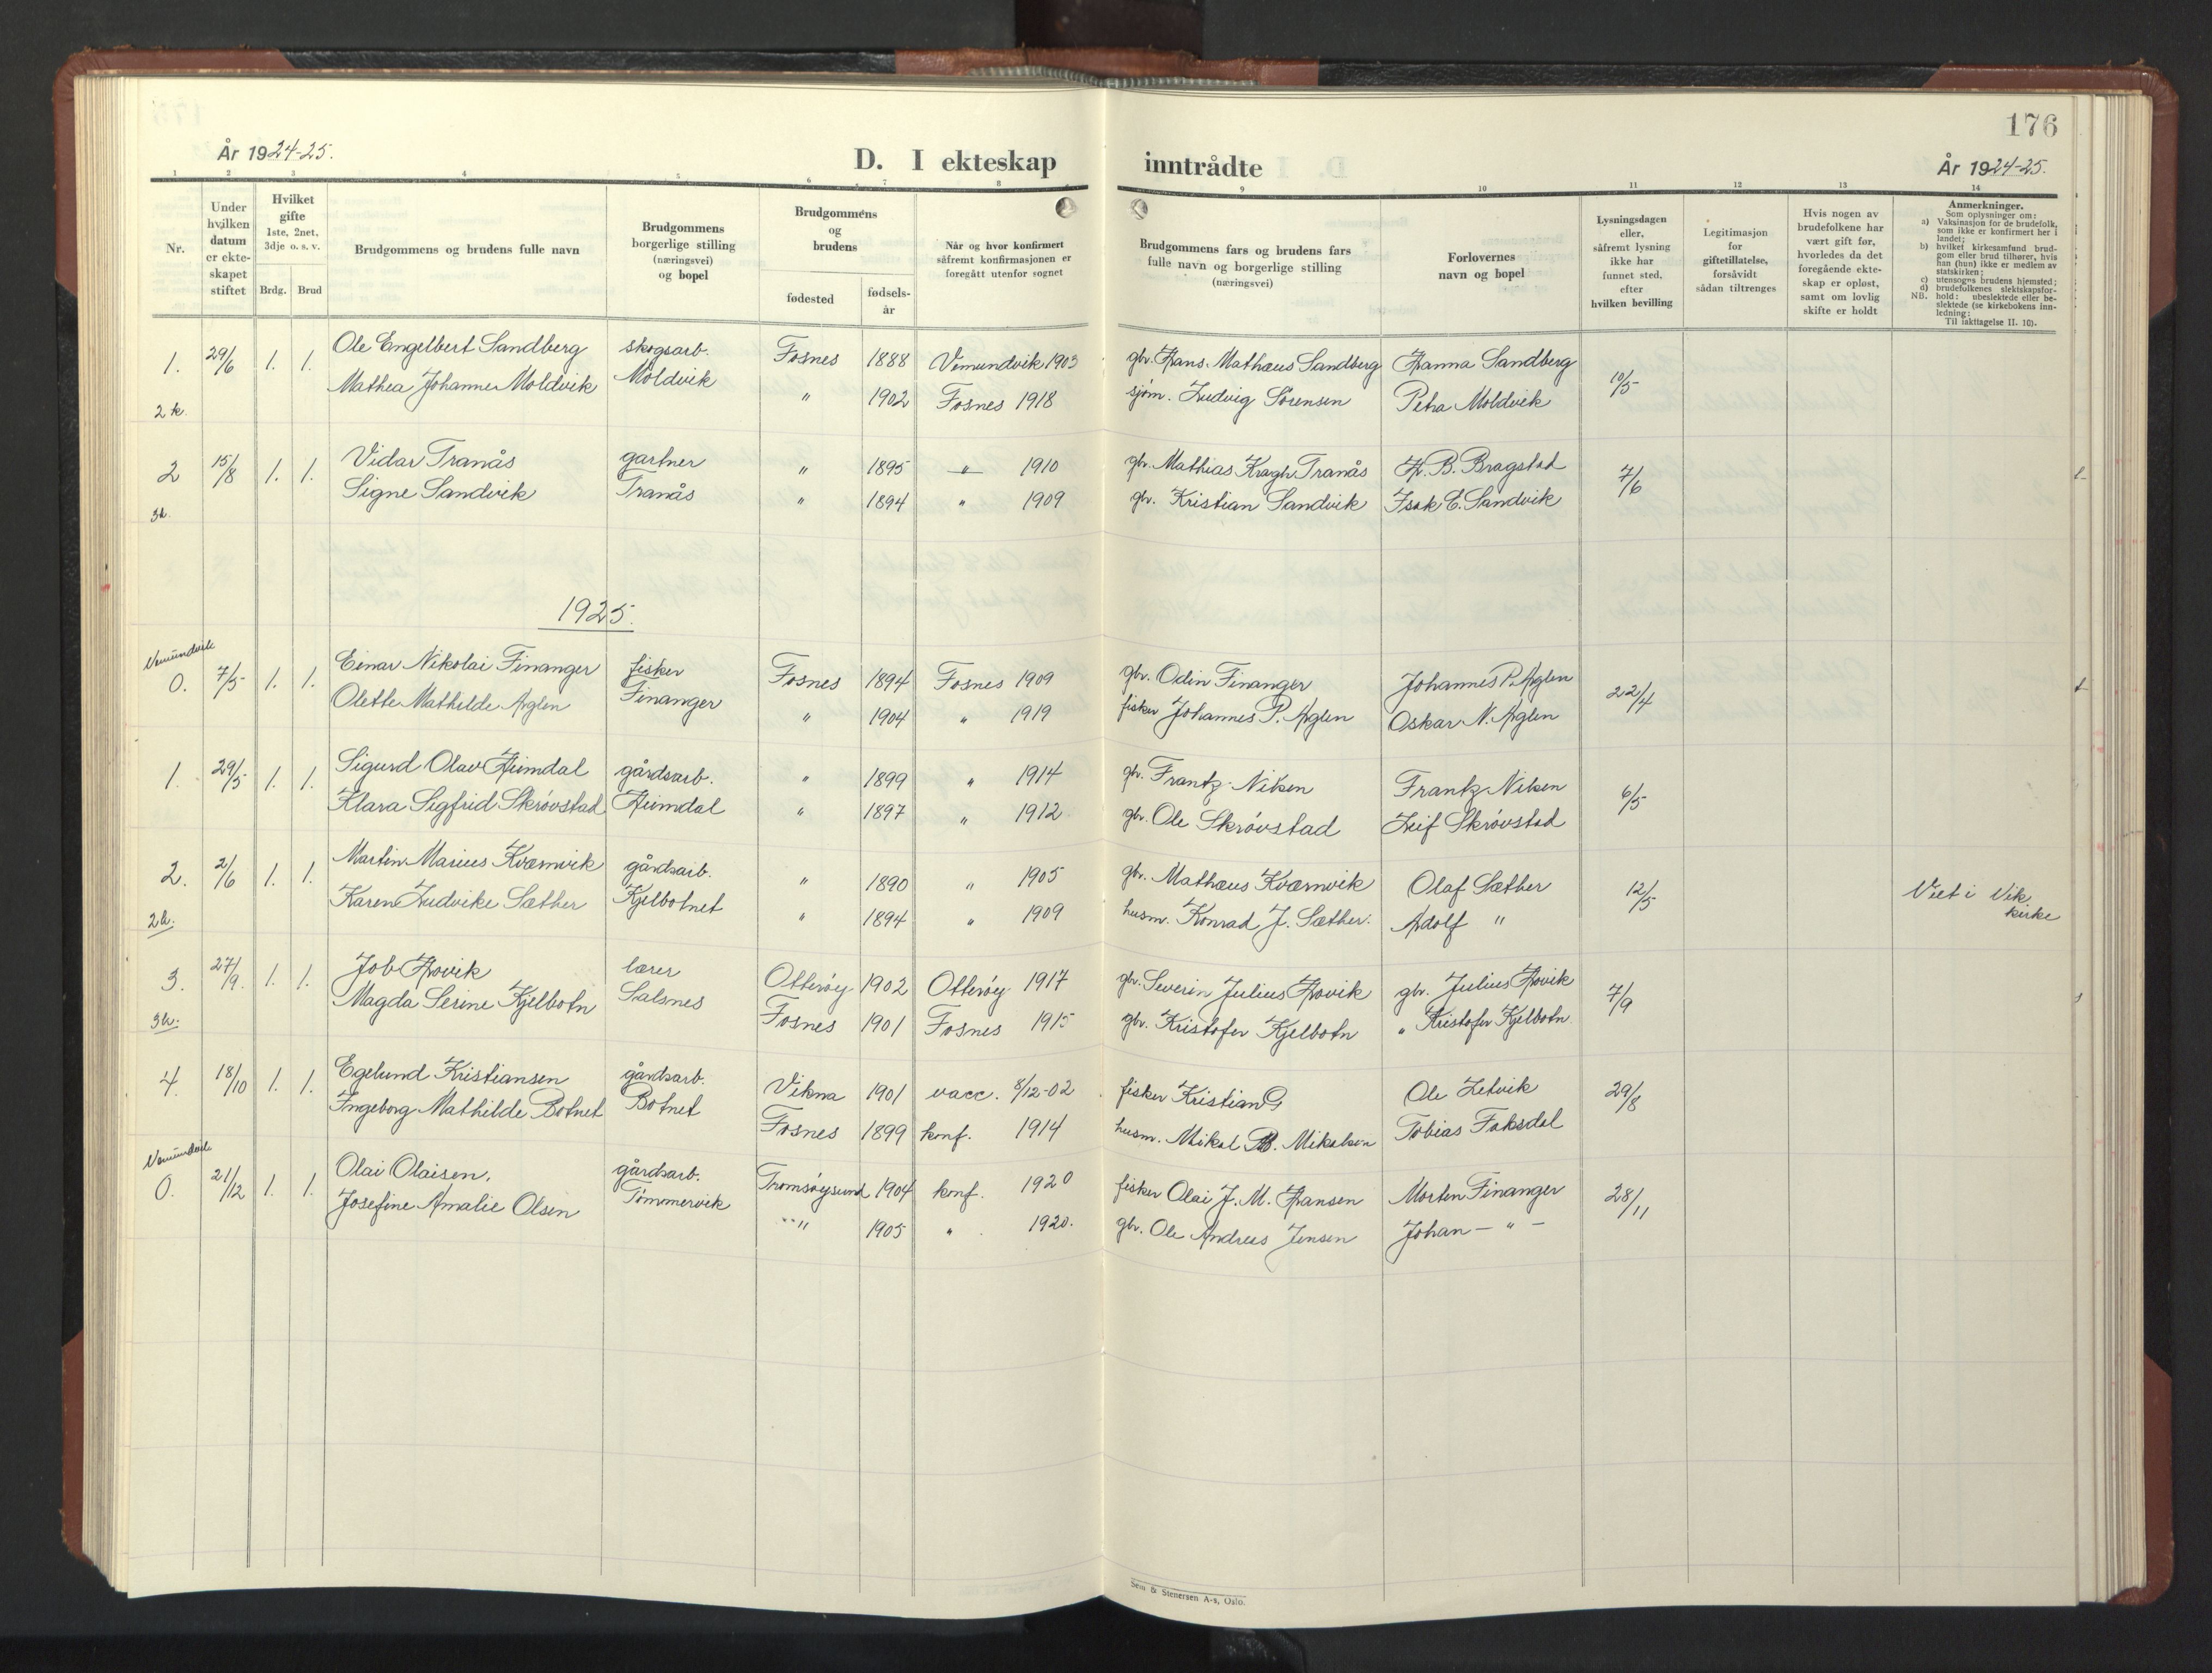 176
År 1924-25.
D. I ekteskap
inntrådte
År 1924-25.
1 2 3 4 5 6 7 8 9 10 11 12 13 14
Nr.
Under
hvilken
datum
er ekte-
skapet
stiftet
Hvilket
gifte
1ste, 2net,
3dje o. s. v.
Brdg. Brud
Brudgommens og brudens fulle navn
Brudgommens
borgerlige stilling
(næringsvei)
og bopel
Brudgommens
og
brudens
fødested
fødsels-
år
Når og hvor konfirmert
såfremt konfirmasjonen er
foregått utenfor sognet
Brudgommens fars og brudens fars
fulle navn og borgerlige stilling
(næringsvei)
Forlovernes
navn og bopel
Lysningsdagen
eller,
såfremt lysning
ikke har
funnet sted,
efter
hvilken bevilling
Legitimasjon
for
giftetillatelse,
forsåvidt
sådan tiltrenges
Hvis nogen av
brudefolkene har
vært gift før,
hvorledes da det
foregående ekte-
skap er opløst,
samt om lovlig
skifte er holdt
Anmerkninger.
Som oplysninger om:
a) Vaksinasjon for de brudefolk,
som ikke er konfirmert her i
landet;
b) hvilket kirkesamfund brud-
gom eller brud tilhører, hvis
han (hun) ikke er medlem av
statskirken;
c) utensogns brudens hjemsted;
d) brudefolkenes slektskapsfor-
NB. hold: ubeslektede eller be-
slektede (se kirkebokens inn-
ledning:
Til iakttagelse II. 10).
1. 29/6 1. 1. Ole Engelbert Sandberg skogsarb. Fosnes 1888 Vemundvik 1903 gbr. Hans Mathæus Sandberg Hanna Sandberg 10/5
Mathea Johanne Moldvik Moldvik " 1902 Fosnes 1918 sjøm. Ludvig Sørensen Petra Moldvik
2 k.
2 15/8 1. 1. Vidar Tranås gartner " 1895 " 1910 gbr. Mathias Kragh Tranås H. B. Bragstad 7/6
Signe Sandvik Tranås " 1894 " 1909 gbr. Kristian Sandvik Isak E. Sandvik
3k.
1925.
Vemundvik
0. 7/5 1. 1. Einar Nikolai Finanger fisker Fosnes 1894 Fosnes 1909 gbr. Odin Finanger Johannes P. Aglen 22/4
Olette Mathilde Aglen Finanger " 1904 " 1919 fisker Johannes P. Aglen Oskar N. Aglen
1. 29/5 1. 1. Sigurd Olav Heimdal gårdsarb. " 1899 " 1914 gbr. Frantz Nilsen Frantz Nilsen 6/5
Klara Sigfrid Skrøvstad Heimdal " 1897 " 1912 gbr. Ole Skrøvstad Leif Skrøvstad
2. 2/6 1. 1. Martin Marius Kværnvik gårdsarb. " 1890 " 1905 gbr. Mathæus Kværnvik Olaf Sæther 12/5 Viet i Vik
kirke
Karen Ludvike Sæther Kjelbotnet " 1894 " 1909 husm. Konrad J. Sæther. Adolf "
2k.
3. 27/9. 1. 1. Job Hovik lærer Otterøy 1902 Otterøy 1917 gbr. Severin Julius Hovik gbr. Julius Hovik 7/9
Magda Serine Kjelbotn Salsnes Fosnes 1901 Fosnes 1915 gbr. Kristofer Kjelbotn " Kristofer Kjelbotn
3k.
4. 18/10 1. 1. Egelund Kristiansen gårdsarb. Vikna 1901 vacc. 8/12-02 fisker Kristian G Ole Letvik 29/8
Ingeborg Mathilde Botnet Botnet Fosnes 1899 konf. 1914 husm. Mikal B. Mikalsen Tobias Faksdal
Vemundvik
0. 21/12 1. 1. Olai Olaisen. gårdsarb. Tromsøysund 1904 konf. 1920 fisker Olai J. M. Hansen Morten Finanger 28/11
Josefine Amalie Olsen Tømmervik " 1905 " 1920. gbr. Ole Andreas Jensen Johan — " —
Sem & Stenersen A-s, Oslo.